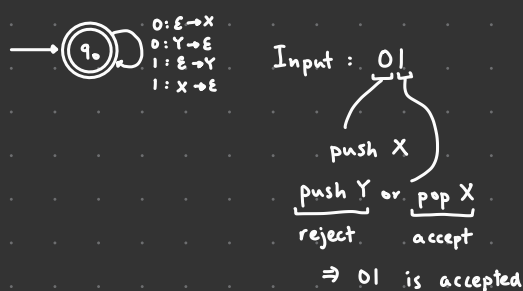 q₀
0: ε→X
0: Y→ε
1: ε→Y
1: X→ε
Input: 01
push X
push Y or pop X
reject accept
⇒ 01 is accepted